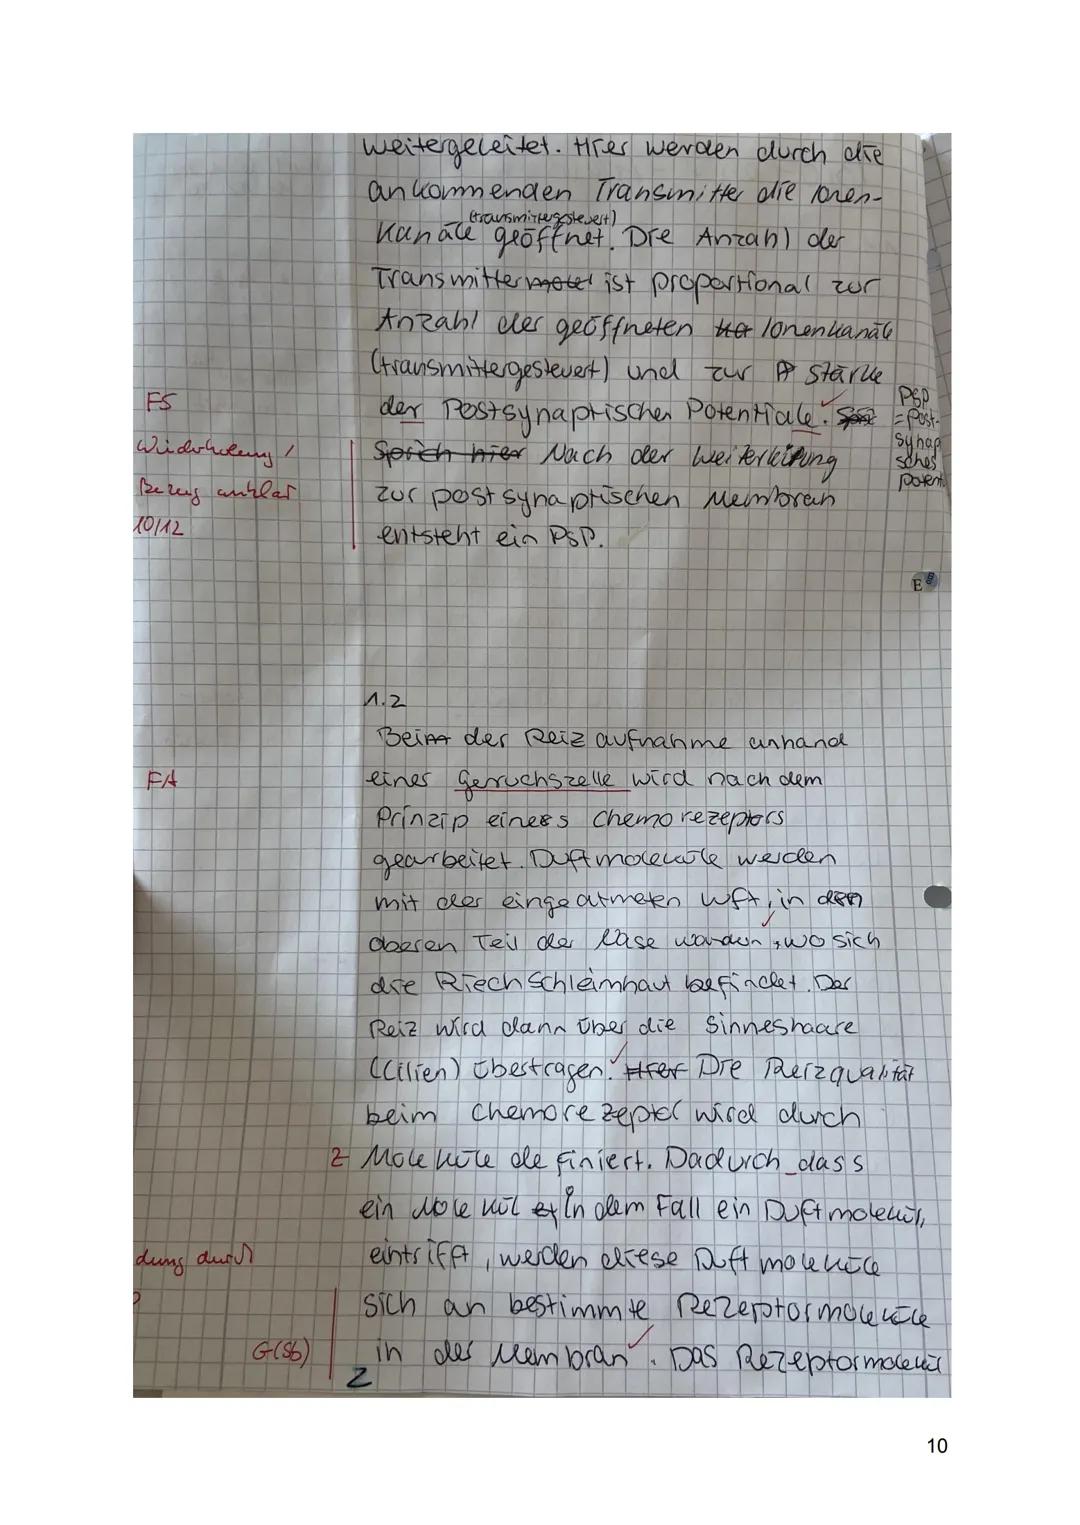 weitergeleitet. Hier werden durch die
ankommenden Transmitter die Ionen-
(transmittergesteuert)
Kanäle geöffnet. Die Anzahl der
Transmitter ist proportional zur
Anzahl der geöffneten Ionenkanäle
(transmittergesteuert) und zur Stärke
FS
der Postsynaptischer Potentiale.
PSP
= Post-
synap
sches
potent.
Wiederholung /
Sprich hier Nach der Weiterleitung
Bezug unklar
zur postsynaptischen Membran
10/12
entsteht ein PSP.
E
1.2
Beim der Reizaufnahme anhand
FA
einer Geruchszelle wird nach dem
Prinzip eines Chemorezeptors
gearbeitet. Duftmoleküle werden
mit der eingeatmeten Luft, in den
oberen Teil der Nase, wo sich
die Riechschleimhaut befindet. Der
Reiz wird dann über die Sinneshaare
(Cilien) übertragen. Hier Die Reizqualität
beim Chemorezeptor wird durch
Z Moleküle definiert. Dadurch dass
ein Molekül in dem Fall ein Duftmolekül,
dung durch
eintrifft, werden diese Duftmoleküle
sich an bestimmte Rezeptormoleküle
G(Sb)
in der Membran. Das Rezeptormolekül
Z
10